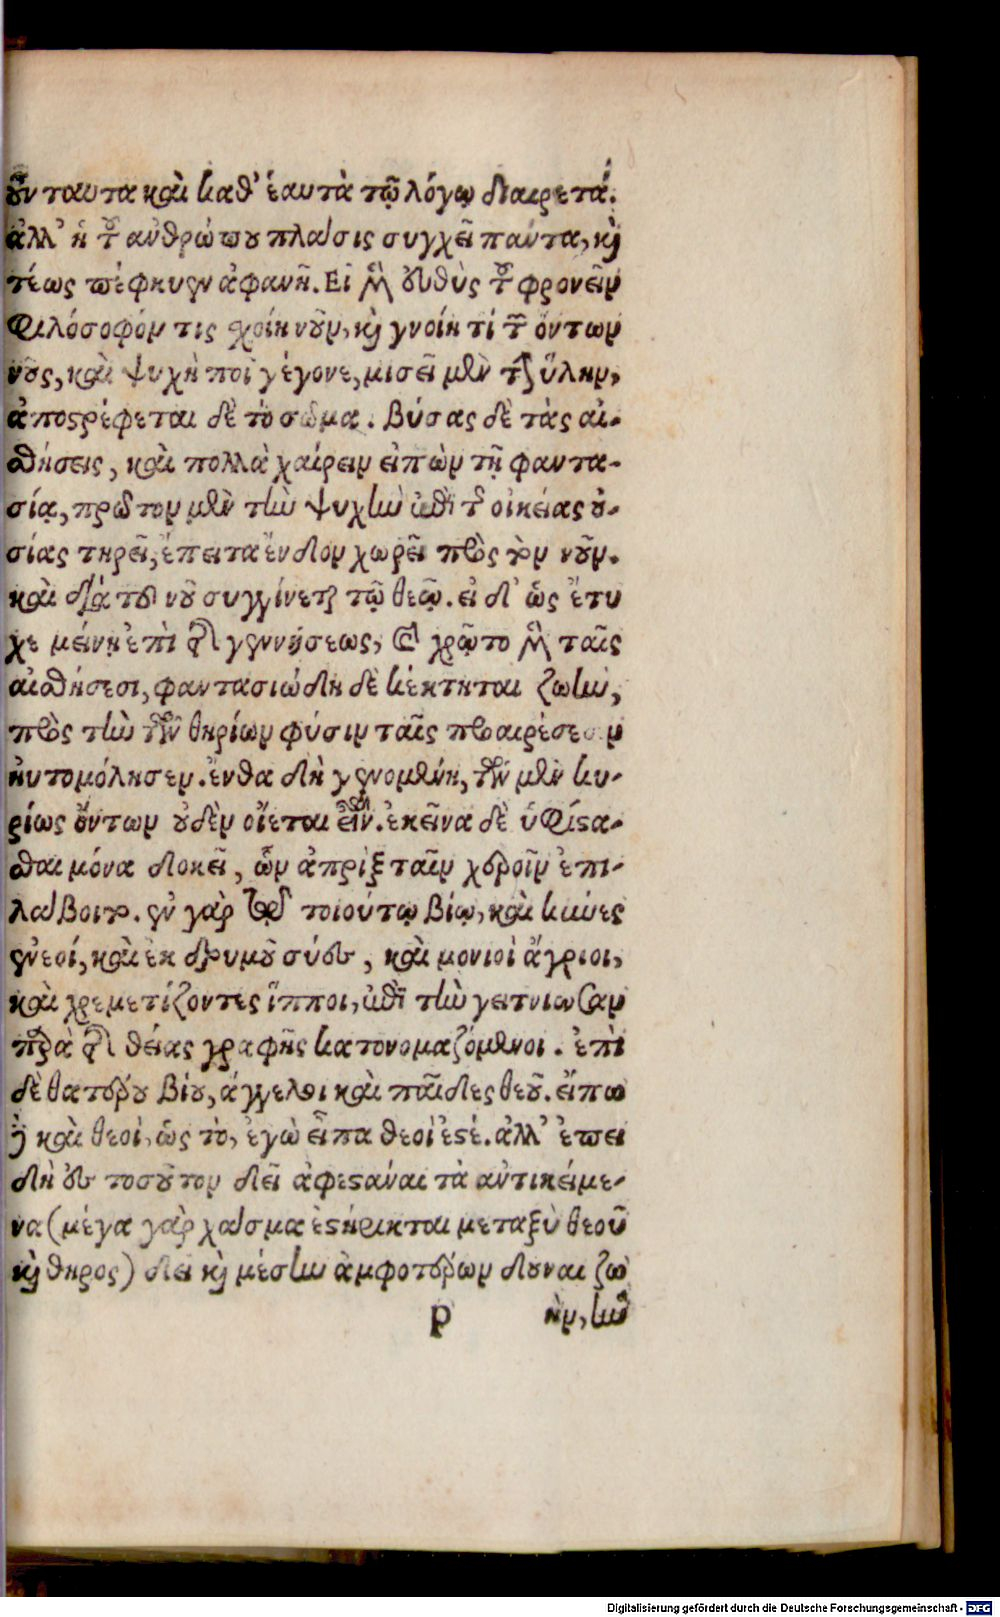 οὖν ταυτα καὶ καθ' ἑαυτὰ τῷ λόγῳ διαιρετά.
ἀλλ' ἡ τοῦ ἀνθρώπου πλάσις συγχεῖ πάντα, καὶ
τέως πέφηνεν ἀφανῆ. Εἰ μὲν εὐθὺς τοῦ φρονεῖν
φιλόσοφόν τις σχοίη νοῦν, καὶ γνοίη τί τῶν ὄντων
νοῦς, καὶ ψυχὴ ποῖ γέγονε, μισεῖ μὲν τὴν ὕλην,
ἀποστρέφεται δὲ τὸ σῶμα. βύσας δὲ τὰς αἰ-
σθήσεις, καὶ πολλὰ χαίρειν εἰπὼν τῇ φαντα-
σίᾳ, πρῶτον μὲν τὴν ψυχὴν ἐπὶ τῆς οἰκείας οὐ-
σίας τηρεῖ, ἔπειτα ἔνδον χωρεῖ πρὸς τὸν νοῦν.
καὶ διὰ τοῦ νοῦ συγγίνεται τῷ θεῷ. εἰ δ' ὡς ἔτυ
χε μείνῃ ἐπὶ τῆς γεννήσεως, καὶ χρῷτο μὲν ταῖς
αἰσθήσεσι, φαντασιώδη δὲ κέκτηται ζωὴν,
πρὸς τὴν τῶν θηρίων φύσιν ταῖς προαιρέσεσιν
ηὐτομόλησεν. ἔνθα δὴ γενομένη, τῶν μὲν κυ-
ρίως ὄντων οὐδὲν οἴεται εἶναι. ἐκεῖνα δὲ ὑφίστα-
σθαι μόνα δοκεῖ, ὧν ἀπρὶξ ταῖν χεροῖν ἐπι-
λάβοιτο. ἐν γὰρ τῷ τοιούτῳ βίῳ, καὶ κύνες
ἐνεοί, καὶ ἐκ δρυμοῦ σύες, καὶ μονιοὶ ἄγριοι,
καὶ χρεμετίζοντες ἵπποι, ἐπὶ τὴν γειτνιῶσαν
παρὰ τῆς θείας γραφῆς κατονομαζόμενοι. ἐπὶ
δὲ θατέρου βίου, ἄγγελοι καὶ παῖδες θεοῦ. εἴπω
δὲ καὶ θεοὶ, ὡς τὸ, ἐγὼ εἶπα θεοί ἐστέ. ἀλλ' ἐπει
δὴ οὐ τοσοῦτον δεῖ ἀφεστάναι τὰ ἀντικείμε-
να (μέγα γὰρ χάσμα ἐστήρικται μεταξὺ θεοῦ
καὶ θηρος) δει καὶ μέσην ἀμφοτέρων δουναι ζω
ρ ὴν, ἣν
Digitalisierung gefördert durch die Deutsche Forschungsgemeinschaft - DFG